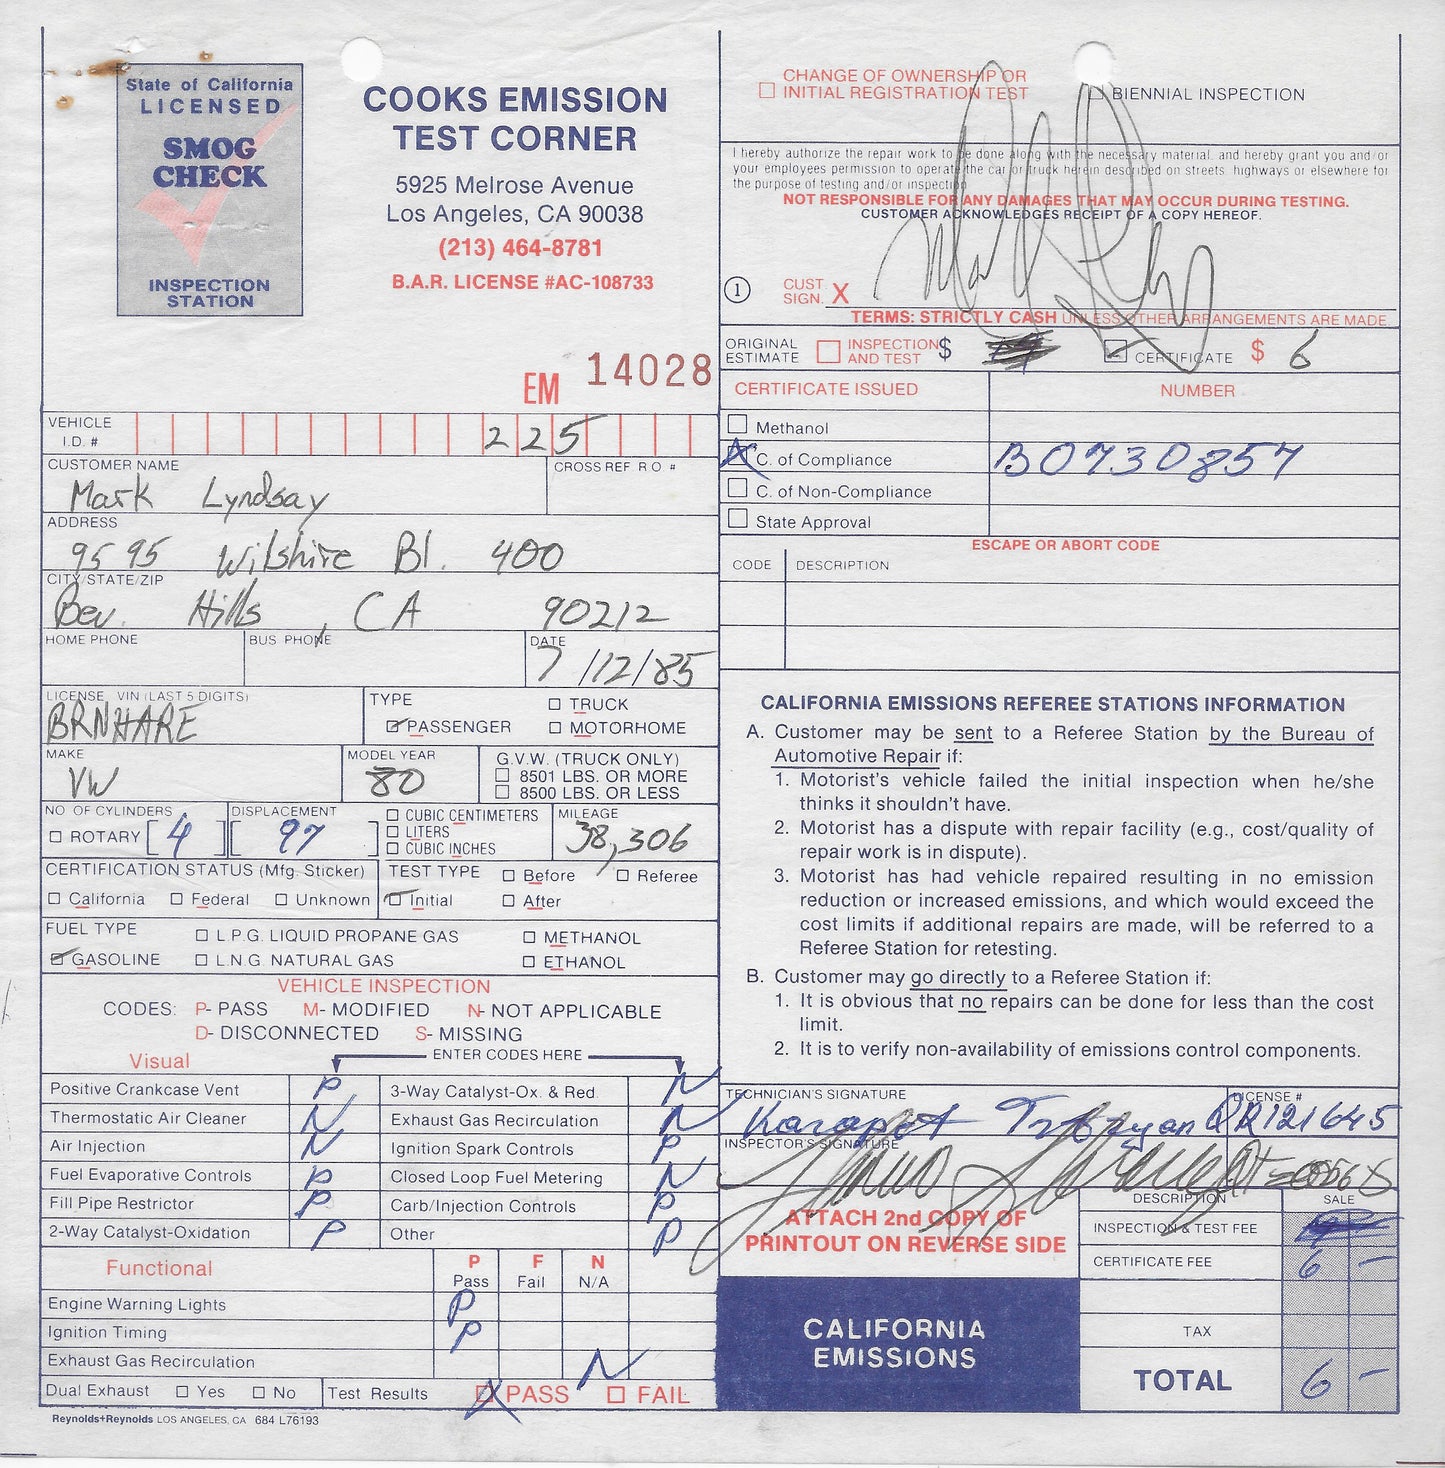 State of California
LICENSED
SMOG
CHECK
INSPECTION
STATION
COOKS EMISSION
TEST CORNER
5925 Melrose Avenue
Los Angeles, CA 90038
(213) 464-8781
B.A.R. LICENSE #AC-108733
EM 14028
VEHICLE I.D. # 225
CUSTOMER NAME CROSS REF R O #
Mark Lyndsay
ADDRESS
9595 Wilshire Bl. 400
CITY/STATE/ZIP
Bev. Hills, CA 90212
HOME PHONE BUS PHONE DATE
7/12/85
LICENSE VIN (LAST 5 DIGITS) TYPE TRUCK
BRNHARE PASSENGER MOTORHOME
MAKE MODEL YEAR G.V.W. (TRUCK ONLY)
VW 80 8501 LBS. OR MORE
8500 LBS. OR LESS
NO OF CYLINDERS DISPLACEMENT CUBIC CENTIMETERS MILEAGE
ROTARY [4] [97] LITERS 38,306
CUBIC INCHES
CERTIFICATION STATUS (Mfg. Sticker) TEST TYPE Before Referee
California Federal Unknown Initial After
FUEL TYPE L.P.G. LIQUID PROPANE GAS METHANOL
GASOLINE L.N.G. NATURAL GAS ETHANOL
VEHICLE INSPECTION
CODES: P- PASS M- MODIFIED N- NOT APPLICABLE
D- DISCONNECTED S- MISSING
Visual ENTER CODES HERE
Positive Crankcase Vent P 3-Way Catalyst-Ox. & Red. N
Thermostatic Air Cleaner N Exhaust Gas Recirculation N
Air Injection N Ignition Spark Controls P
Fuel Evaporative Controls P Closed Loop Fuel Metering N
Fill Pipe Restrictor P Carb/Injection Controls P
2-Way Catalyst-Oxidation P Other P
Functional P Pass F Fail N N/A
Engine Warning Lights P
Ignition Timing P
Exhaust Gas Recirculation N
Dual Exhaust Yes No Test Results X PASS FAIL
Reynolds+Reynolds LOS ANGELES, CA 684 L76193
CHANGE OF OWNERSHIP OR
INITIAL REGISTRATION TEST BIENNIAL INSPECTION
I hereby authorize the repair work to be done along with the necessary material, and hereby grant you and/or
your employees permission to operate the car or truck herein described on streets, highways or elsewhere for
the purpose of testing and/or inspection
NOT RESPONSIBLE FOR ANY DAMAGES THAT MAY OCCUR DURING TESTING.
CUSTOMER ACKNOWLEDGES RECEIPT OF A COPY HEREOF.
1 CUST SIGN. X
TERMS: STRICTLY CASH UNLESS OTHER ARRANGEMENTS ARE MADE
ORIGINAL ESTIMATE INSPECTION AND TEST $ CERTIFICATE $ 6
CERTIFICATE ISSUED NUMBER
Methanol
X C. of Compliance B0730857
C. of Non-Compliance
State Approval
ESCAPE OR ABORT CODE
CODE DESCRIPTION
CALIFORNIA EMISSIONS REFEREE STATIONS INFORMATION
A. Customer may be sent to a Referee Station by the Bureau of
Automotive Repair if:
1. Motorist's vehicle failed the initial inspection when he/she
thinks it shouldn't have.
2. Motorist has a dispute with repair facility (e.g., cost/quality of
repair work is in dispute).
3. Motorist has had vehicle repaired resulting in no emission
reduction or increased emissions, and which would exceed the
cost limits if additional repairs are made, will be referred to a
Referee Station for retesting.
B. Customer may go directly to a Referee Station if:
1. It is obvious that no repairs can be done for less than the cost
limit.
2. It is to verify non-availability of emissions control components.
TECHNICIAN'S SIGNATURE LICENSE #
Karapet QR121645
INSPECTOR'S SIGNATURE
ATTACH 2nd COPY OF
PRINTOUT ON REVERSE SIDE
CALIFORNIA
EMISSIONS
DESCRIPTION SALE
INSPECTION & TEST FEE
CERTIFICATE FEE 6 –
TAX
TOTAL 6 –